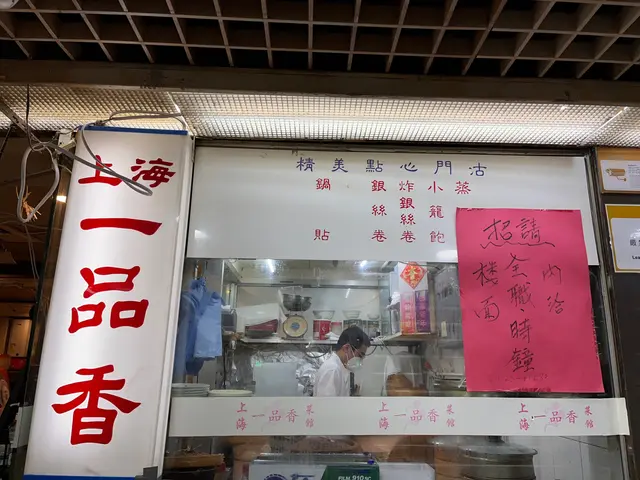 上海
一品香
精美點心門沽
鍋貼
銀絲卷
炸銀絲卷
小龍飽
蒸
想請
樓面
全職·時鐘
內洽
上海一品香菜館
上海一品香菜館
上海一品香菜館
910